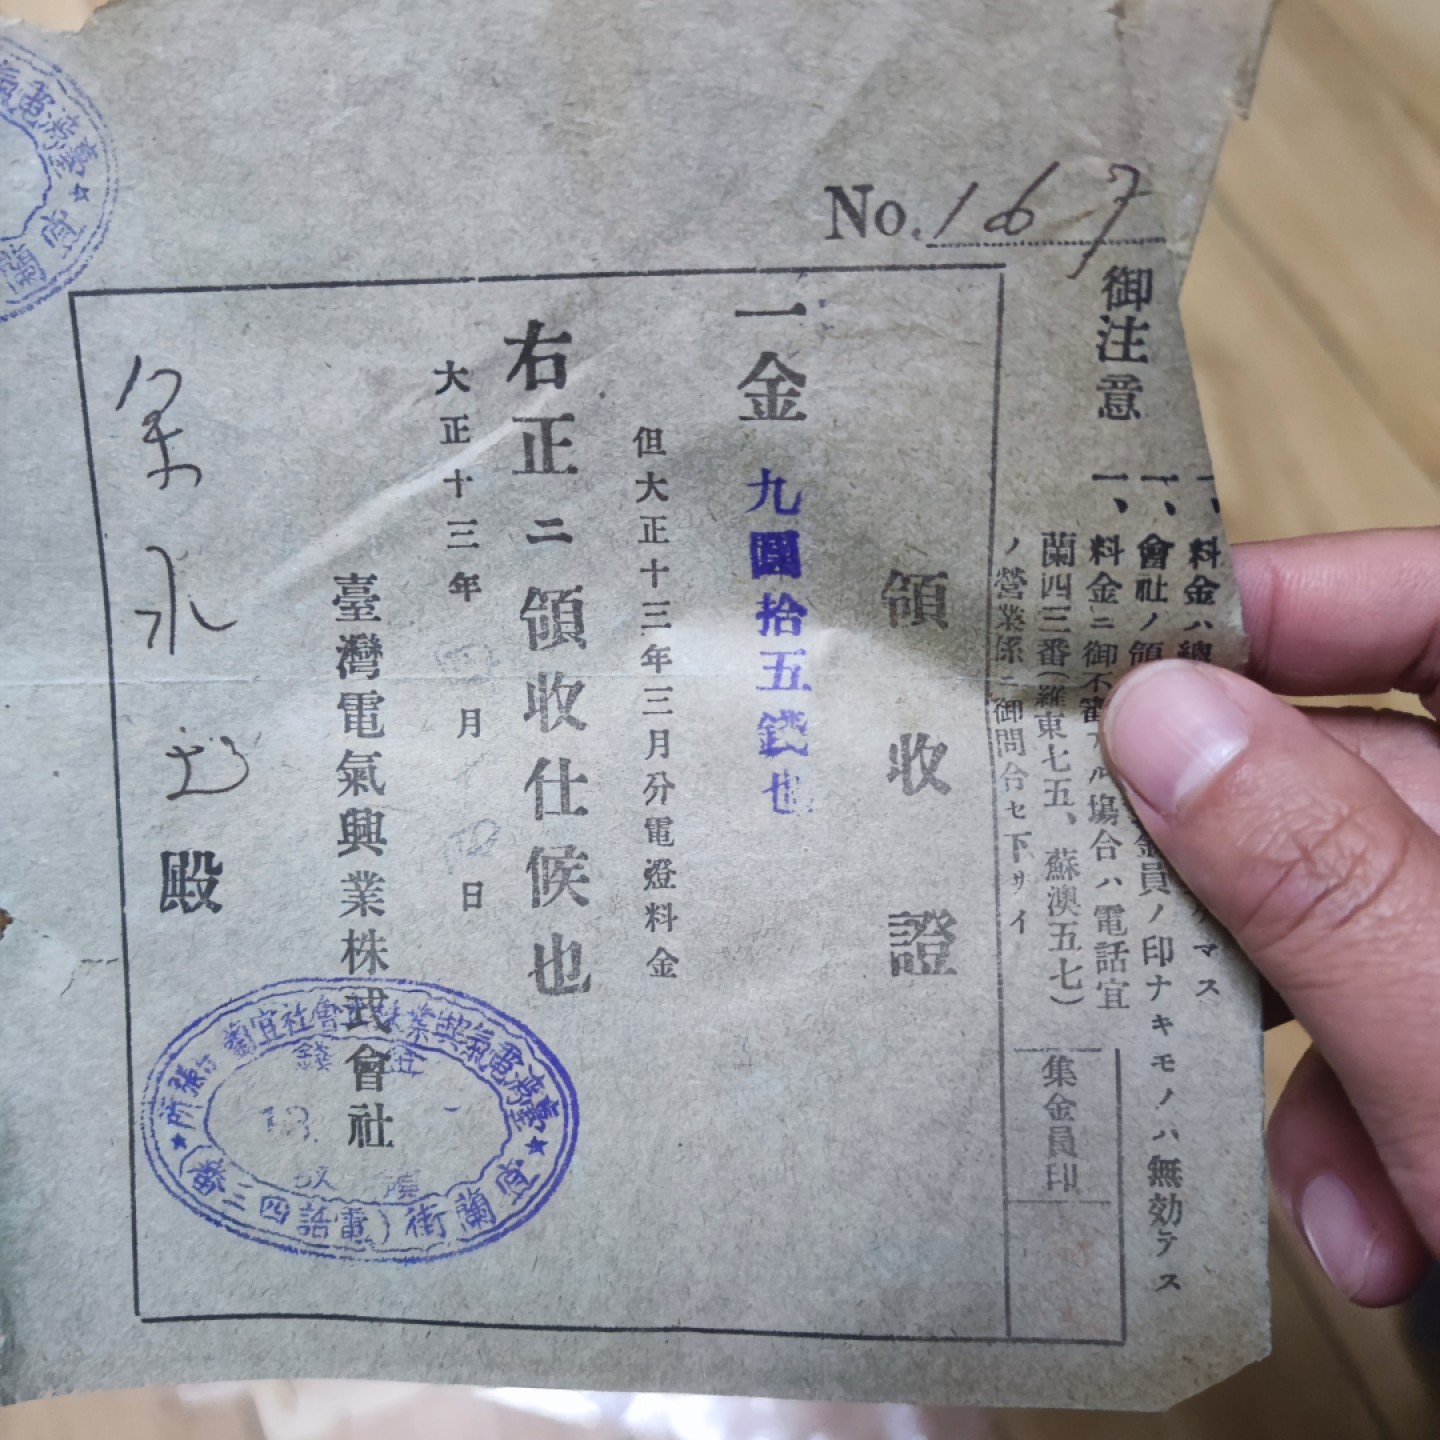 No. 167
御注意
一、料金ハ
一、會社ノ領 金員ノ印ナキモノハ無効デス
一、料金ニ御不審アル場合ハ電話宜
蘭四三番(羅東七五、蘇澳五七)
ノ營業係ニ御問合セ下サイ
集金員印
領收證
一金九圓拾五錢也
但大正十三年三月分電燈料金
右正ニ領收仕候也
大正十三年 月 日
臺灣電氣興業株式會社
永 殿
臺灣電氣興業株式會社宜蘭出張所
宜蘭街(電話四三番)
臺灣電氣
宜蘭